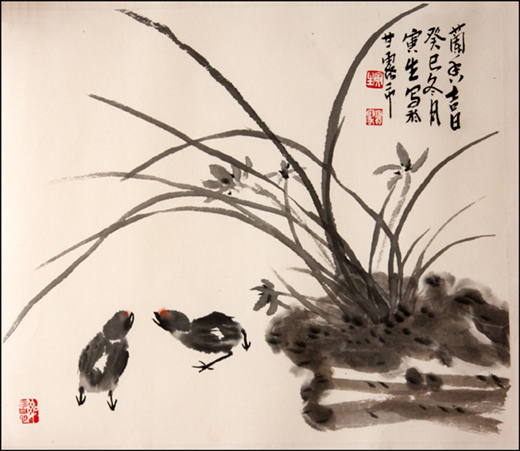 蘭香吉日
癸巳冬月
寅生写於
甘露